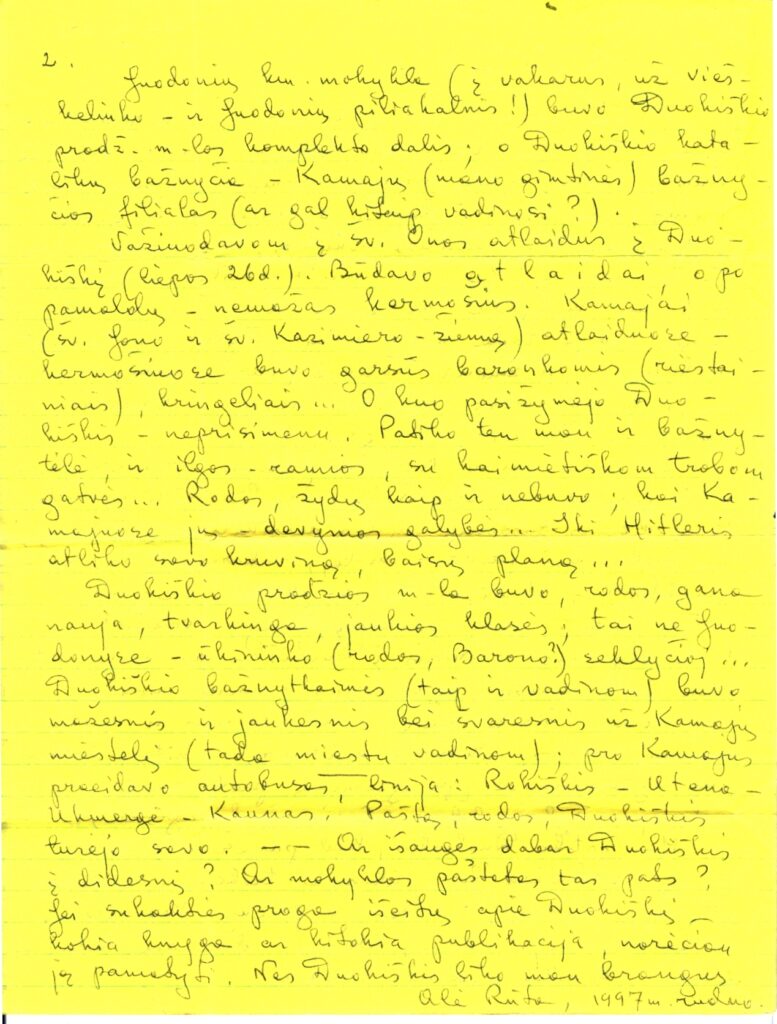 2.
Juodonių km. mokykla (į vakarus, už vieš-
kelinko – ir Juodonių piliakalnis!) buvo Duokiškio
pradž. m-los komplekto dalis; o Duokiškio kata-
likų bažnyčia – Kamajų (mano gimtinės) bažny-
čios filialas (ar gal kitaip vadinosi?).
Važinodavom į šv. Onos atlaidus į Duo-
kiškį (liepos 26d.). Būdavo a t l a i d a i, o po
pamaldų – nemažas kermošius. Kamajai
(šv. Jono ir šv. Kazimiero – žiemą) atlaiduose –
kermošiuose buvo garsūs baronkomis (riestai-
niais), kringeliais... O kuo pasižymėjo Duo-
kiškis – neprisimenu. Patiko ten man ir bažny-
tėlė, ir ilgos – ramios, su kaimietiškom trobom
gatvės... Rodos, žydų kaip ir nebuvo; kai Ka-
majuose jų – devynios galybės... Iki Hitleris
atliko savo kruviną, baisų planą...
Duokiškio pradžios m-la buvo, rodos, gana
nauja, tvarkinga, jaukios klasės; tai ne Juo-
donyse – ūkininko (rodos, Barono?) seklyčioj...
Duokiškio bažnytkaimis (taip ir vadinom) buvo
mažesnis ir jaukesnis bei švaresnis už Kamajų
miestelį (tada miestu vadinom); pro Kamajus
praeidavo autobusas, linija: Rokiškis – Utena –
Ukmergė – Kaunas. Paštą, rodos, Duokiškis
turėjo savo. – – Ar išaugęs dabar Duokiškis
į didesnį? Ar mokyklos pastatas tas pats?
Jei sukakties proga išeitų apie Duokiškį
kokia knyga ar kitokia publikacija, norėčiau
ją pamatyti. Nes Duokiškis liko man brangus.
Alė Rūta, 1997 m. ruduo.